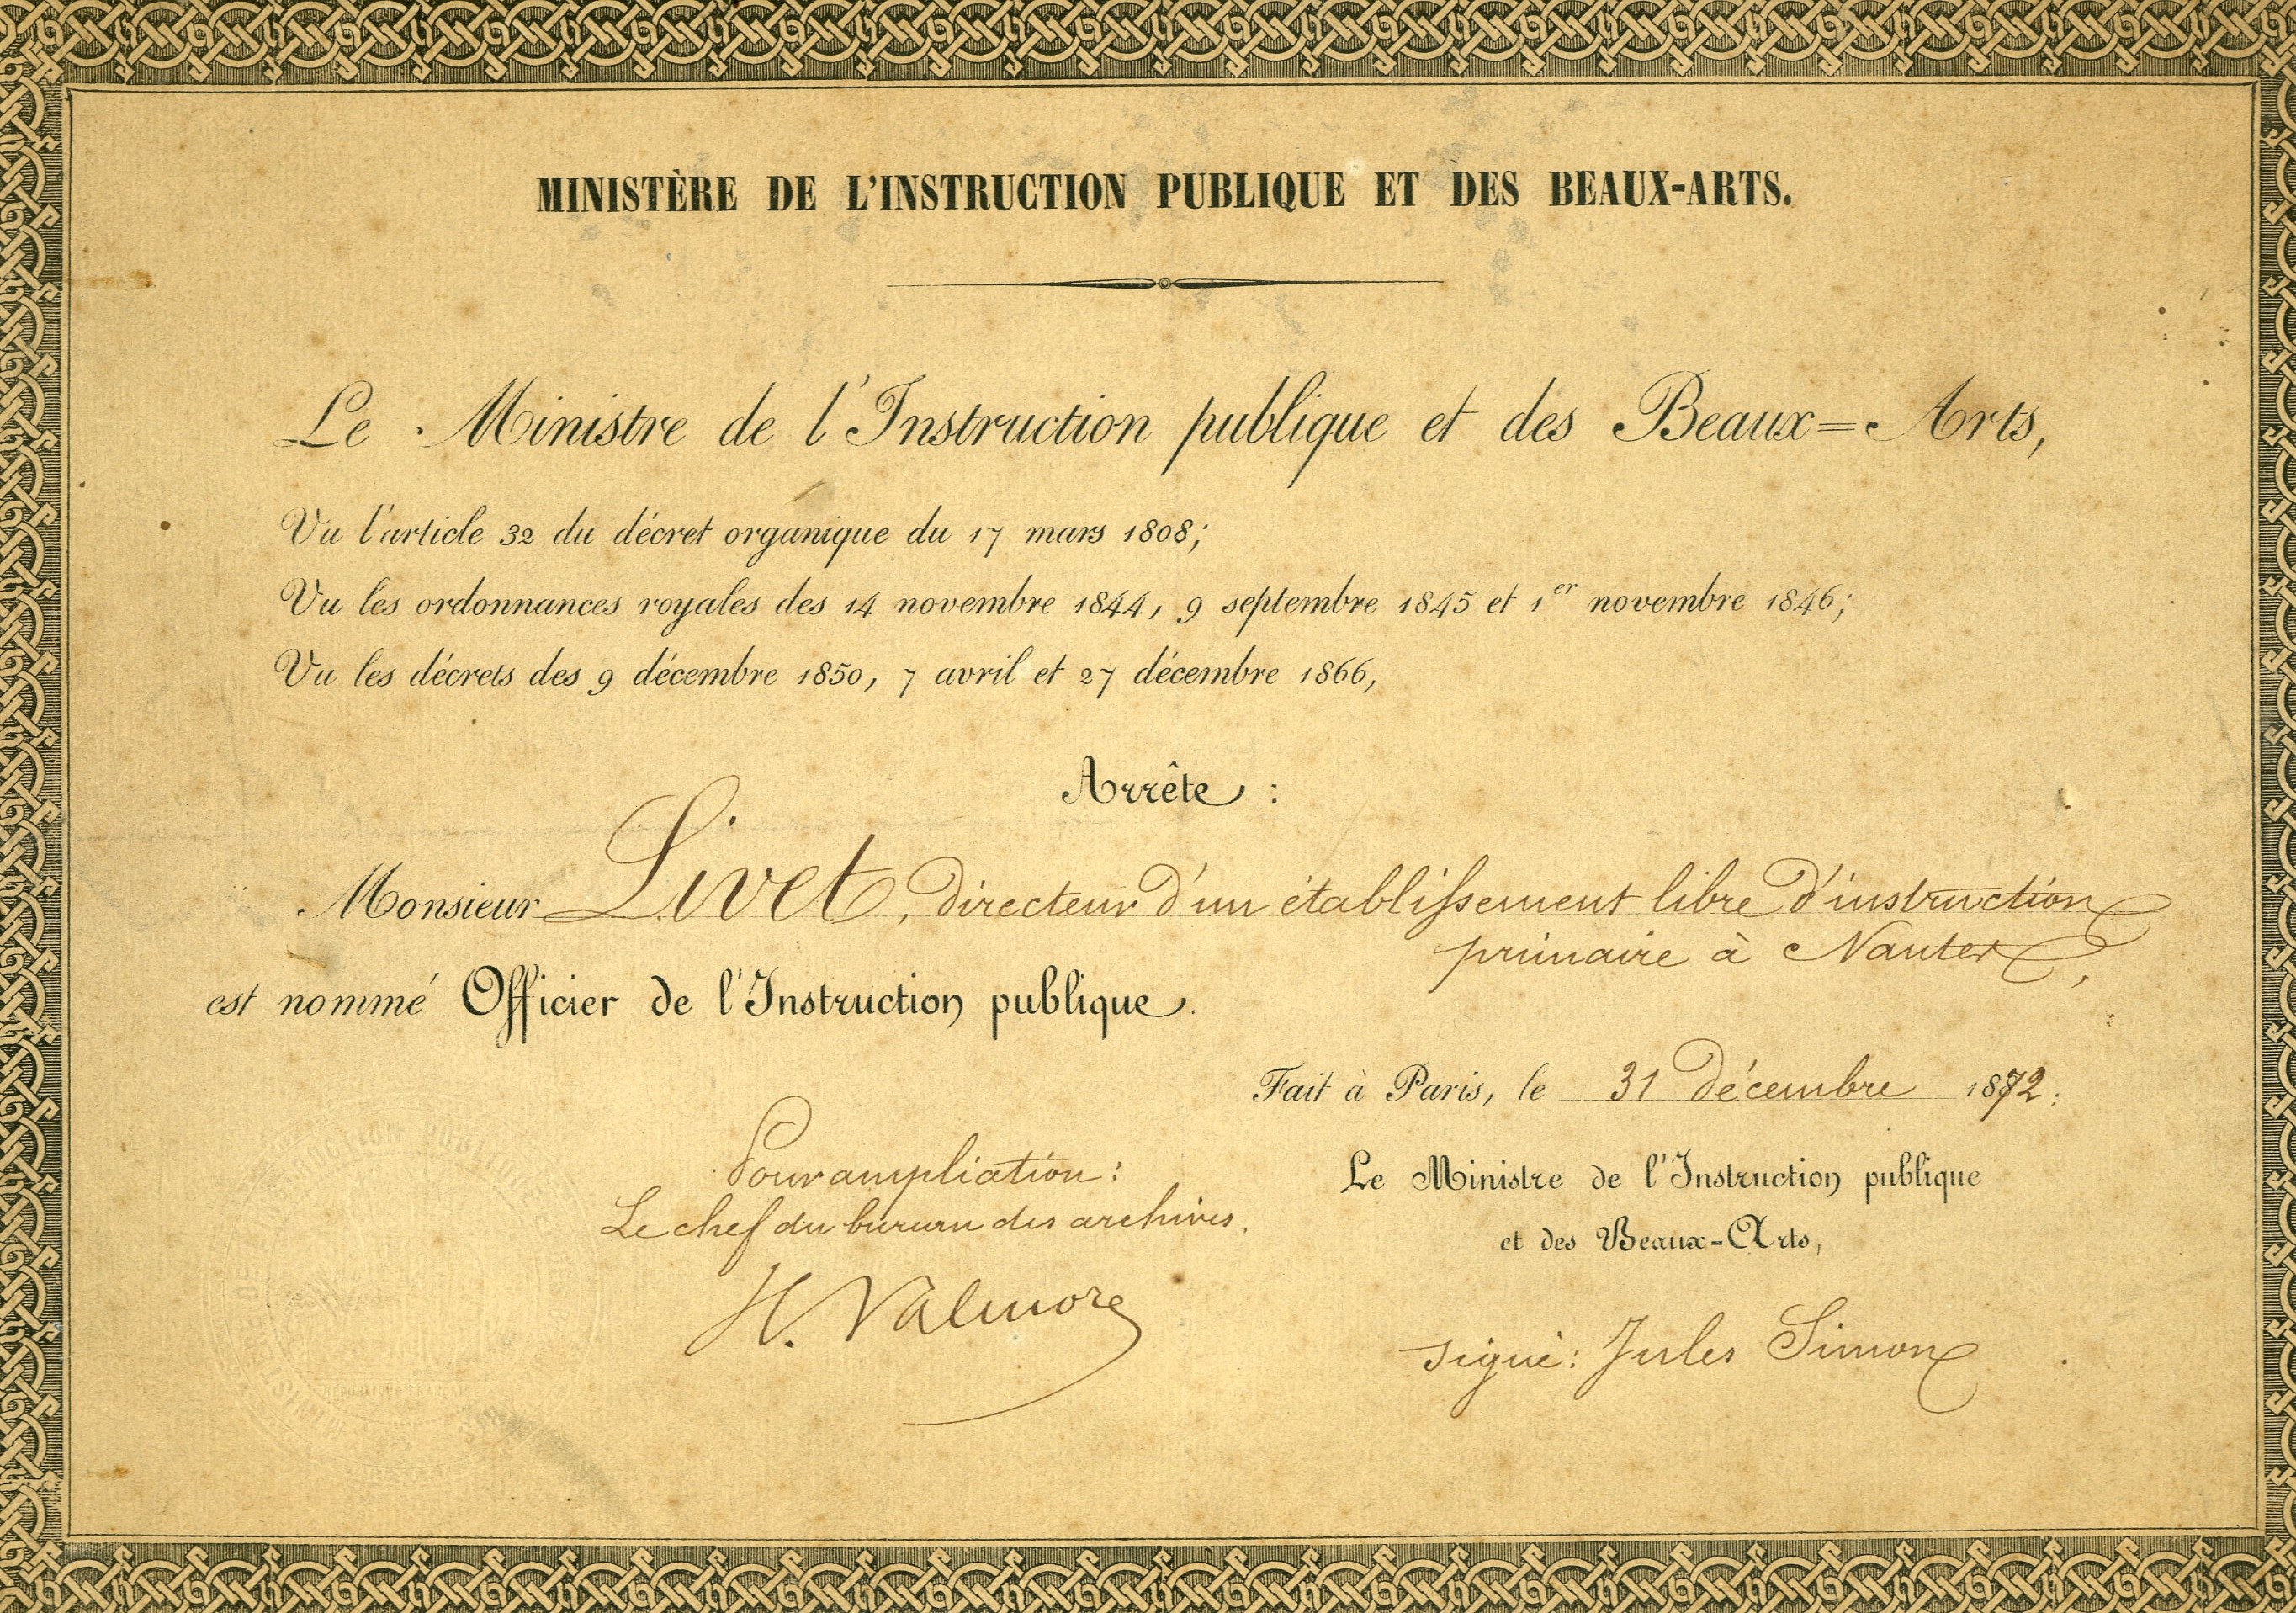 MINISTÈRE DE L'INSTRUCTION PUBLIQUE ET DES BEAUX-ARTS.
Le Ministre de l'Instruction publique et des Beaux=Arts,
Vu l'article 32 du décret organique du 17 mars 1808;
Vu les ordonnances royales des 14 novembre 1844, 9 septembre 1845 et 1er novembre 1846;
Vu les décrets des 9 décembre 1850, 7 avril et 27 décembre 1866,
Arrête :
Monsieur Livet, directeur d'un établissement libre d'instruction
primaire à Nantes,
est nommé Officier de l'Instruction publique.
Fait à Paris, le 31 décembre 1872.
Pour ampliation :
Le chef du bureau des archives.
H. Valmore
Le Ministre de l'Instruction publique
et des Beaux-Arts,
signé : Jules Simon